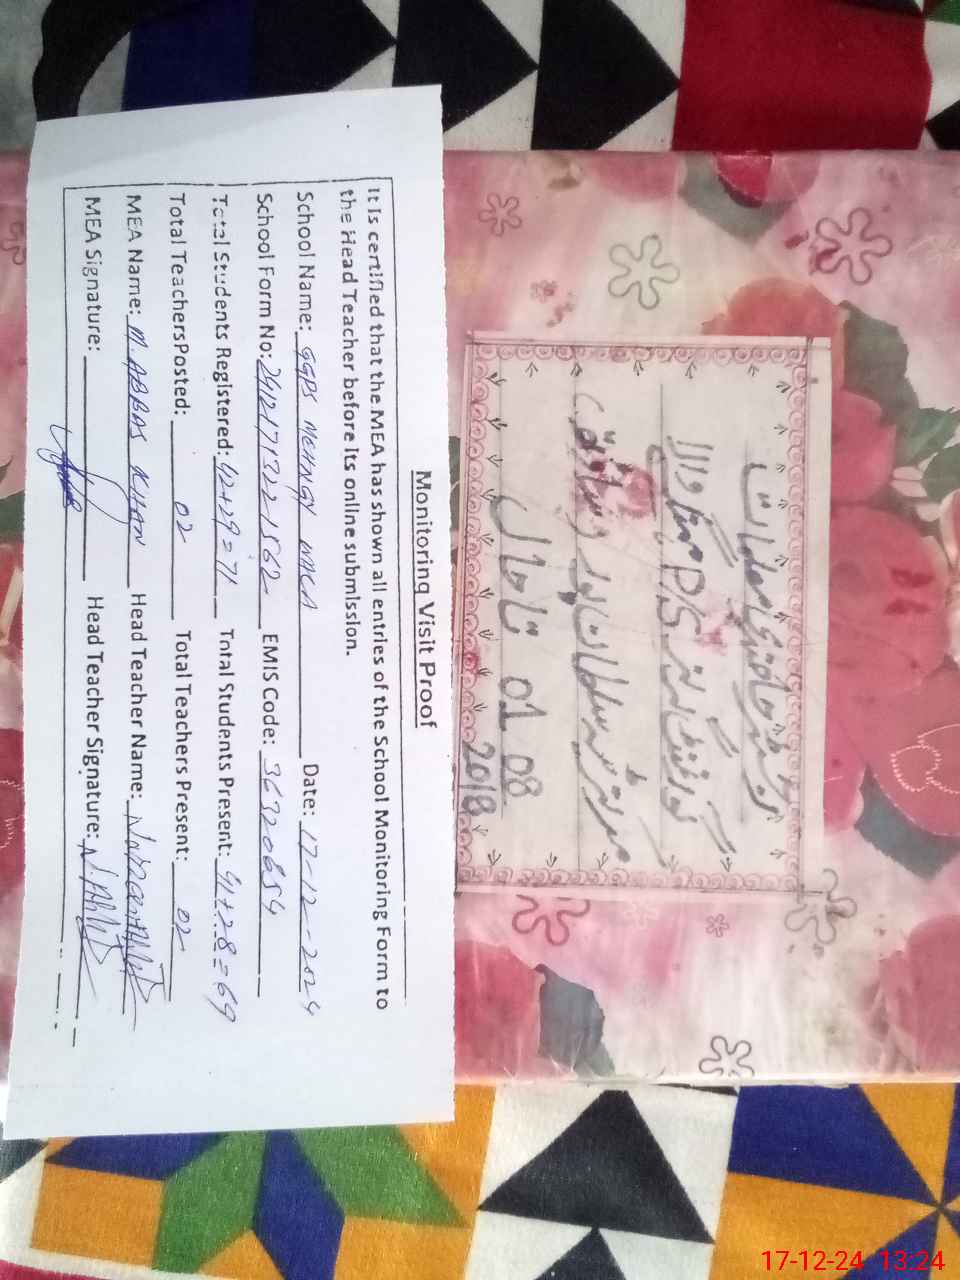 Monitoring Visit Proof
It is certified that the MEA has shown all entries of the School Monitoring Form to
the Head Teacher before its online submission.
School Name: GGPS Date: 17-12-2024
School Form No: 24121713221562 EMIS Code: 36320654
Total Students Registered: 42+29=71 Total Students Present: 41+28=69
Total TeachersPosted: 02 Total Teachers Present: 02
MEA Name: M. ABBAS KHAN Head Teacher Name:
MEA Signature: Head Teacher Signature:
رجسٹر حاضری معلمات
گورنمنٹ گرلز P/S والا
01 08
2018
17-12-24 13:24